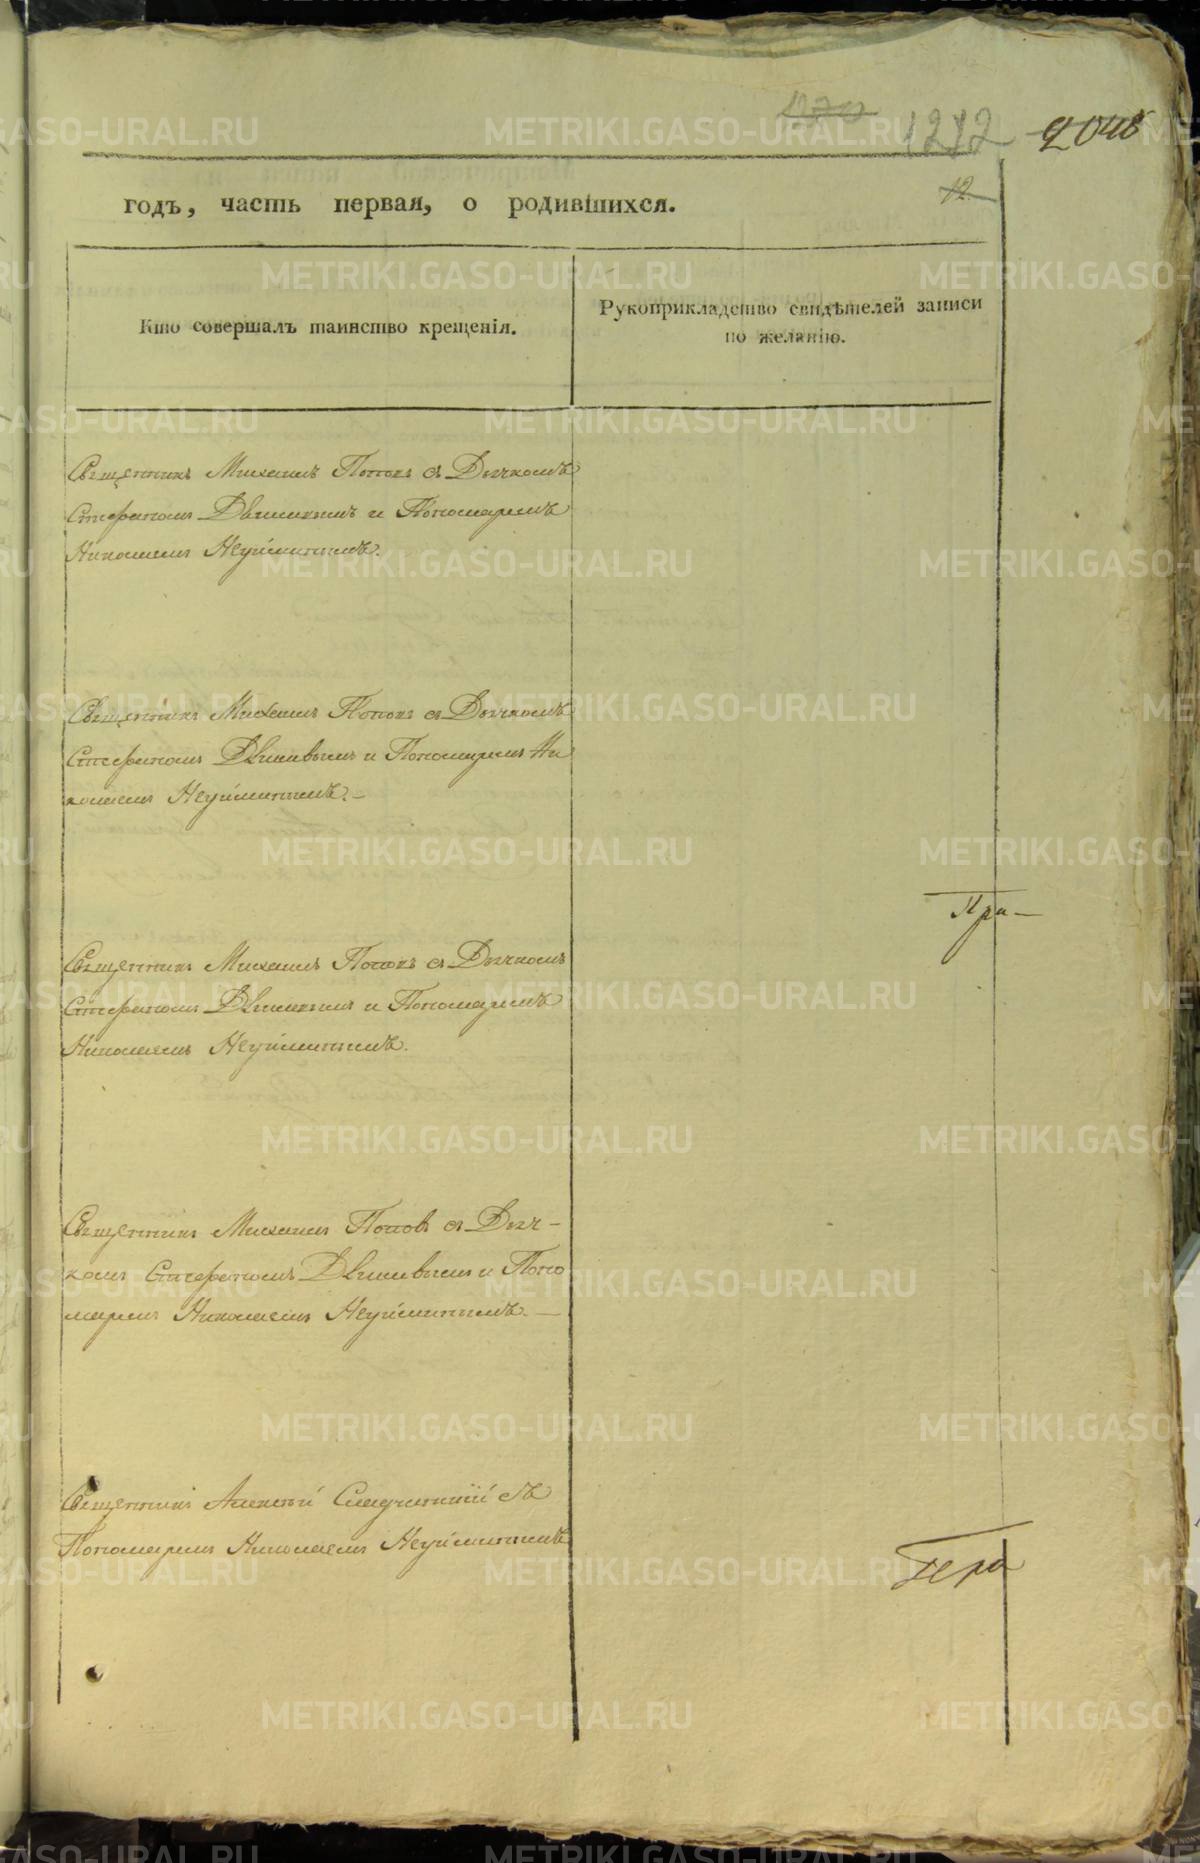 1270 1272 2046
12.
годъ, часть первая, о родившихся.
Кто совершалъ таинство крещенія.
Рукоприкладство свидѣтелей записи
по желанію.
Священникъ Михаилъ Поповъ съ Дьячкомъ
Стефаномъ Двининымъ и Пономаремъ
Николаемъ Неуйминымъ.
Священникъ Михаилъ Поповъ съ Дьячкомъ
Стефаномъ и Пономаремъ Ни
колаемъ Неуйминымъ. –
При –
Священникъ Михаилъ Поповъ съ Дьячкомъ
Стефаномъ и Пономаремъ
Николаемъ Неуйминымъ.
Священникъ Михаилъ Поповъ съ Дьяч–
комъ Стефаномъ и Поно
маремъ Николаемъ Неуйминымъ. –
Священникъ Алексѣй съ
Пономаремъ Николаемъ Неуйминымъ
METRIKI.GASO-URAL.RU